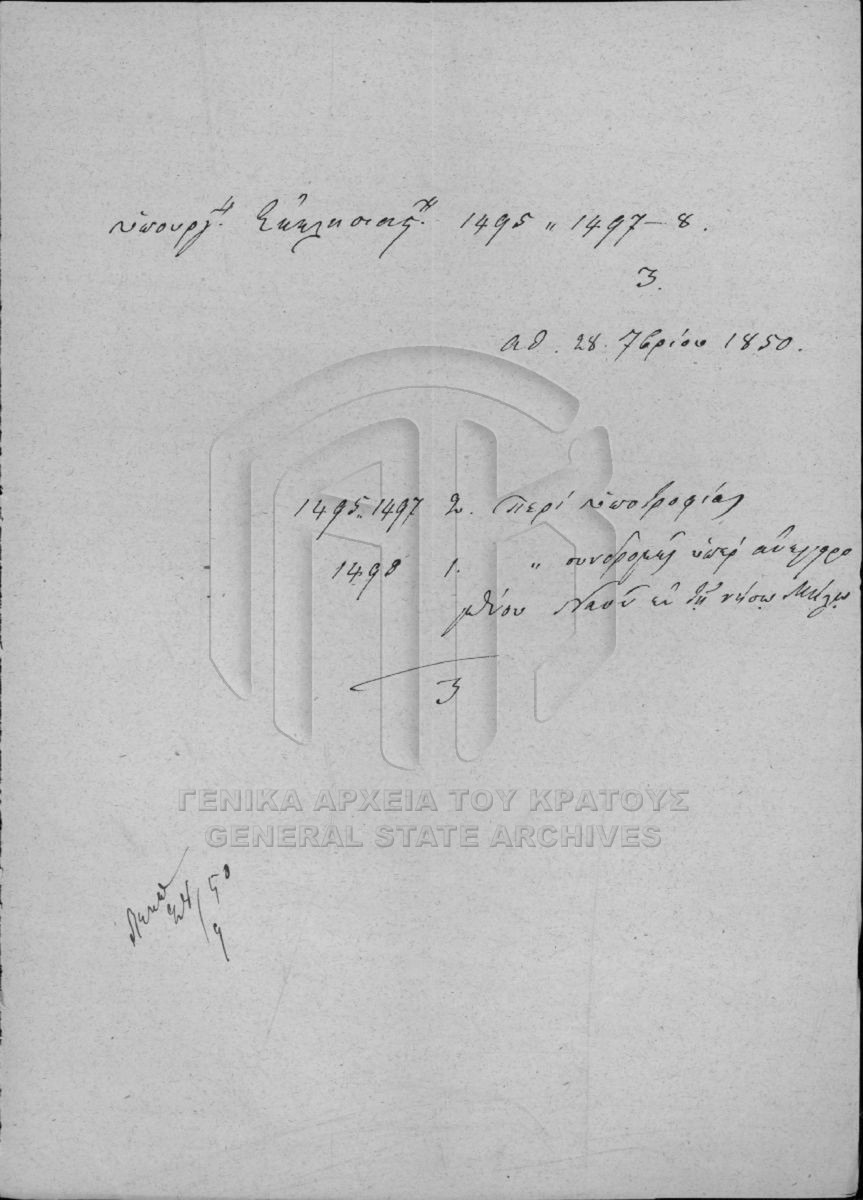 Ὑπουργ. Ἐκκλησιαστ. 1495 „ 1497–8.
3.
Ἀθ. 28. 7βρίου 1850.
1495„1497 2. Περὶ ὑποτροφίας
1498 1. „ συνδρομῆς ὑπὲρ
Ναοῦ ἐν τῇ νήσῳ Μήλῳ
3
ΓΕΝΙΚΑ ΑΡΧΕΙΑ ΤΟΥ ΚΡΑΤΟΥΣ
GENERAL STATE ARCHIVES
50
9